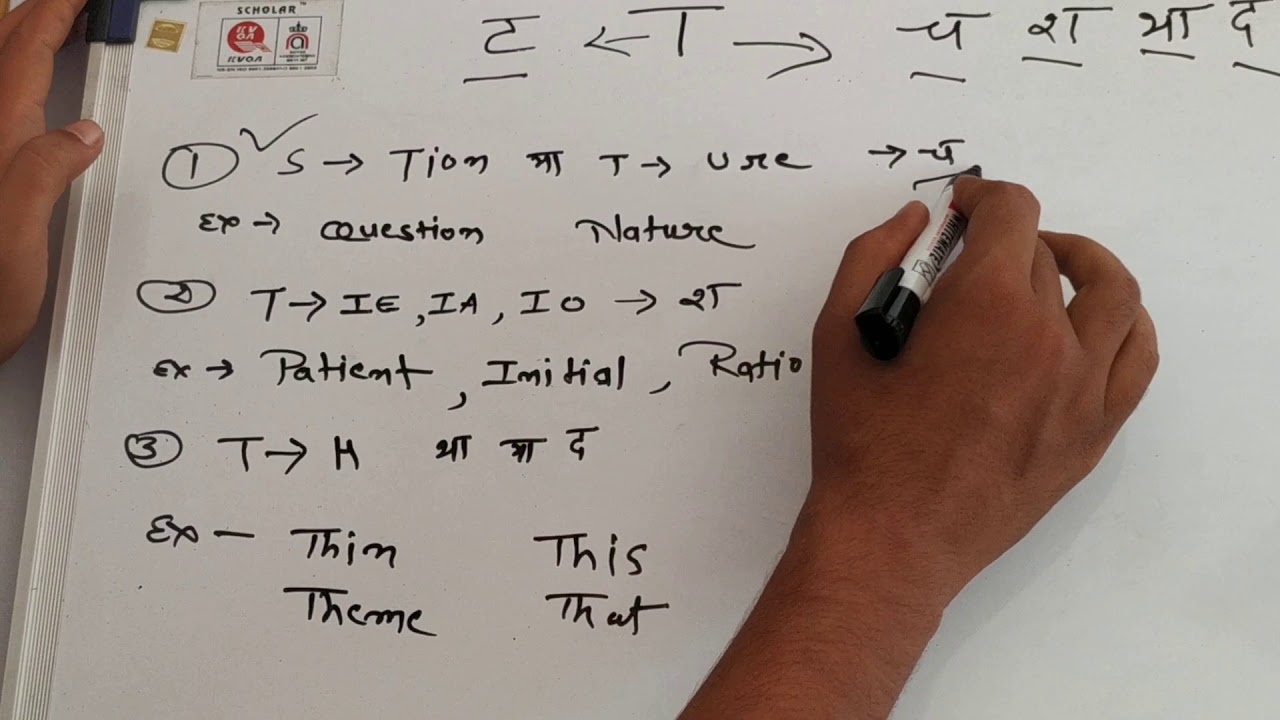 SCHOLAR
KVQA
KVQA
ट ← T → च श था द
① ✓ S → Tion या T → ure → च
Ex → Question Nature
② T → IE, IA, IO → श
Ex → Patient, Initial, Ratio
③ T → H था या द
Ex — Thin This
Theme That
WHITEMATE